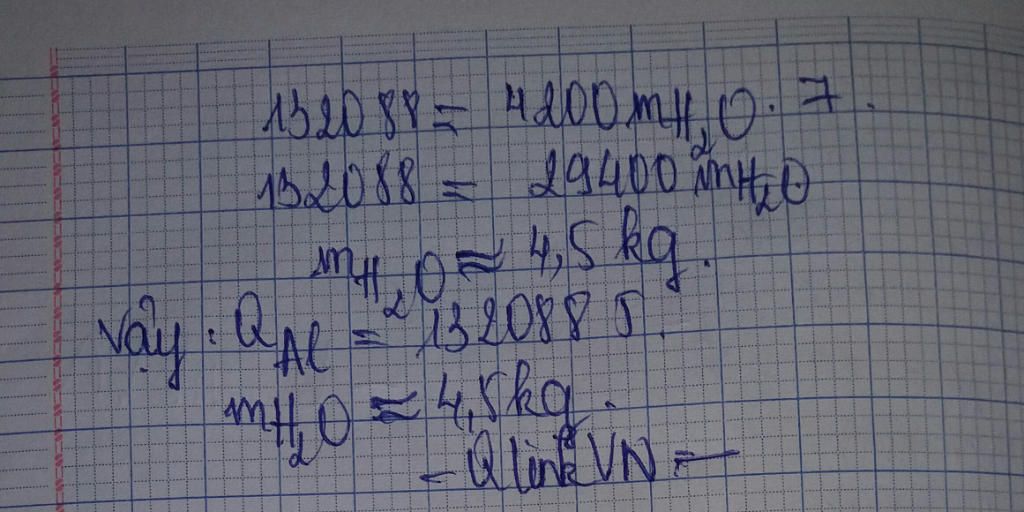 132088 = 4200 mH₂O . 7 .
132088 = 29400 mH₂O
mH₂O ≈ 4,5 kg .
Vậy : QAl = 132088 J .
mH₂O ≈ 4,5 kg .
– Q link VN =—